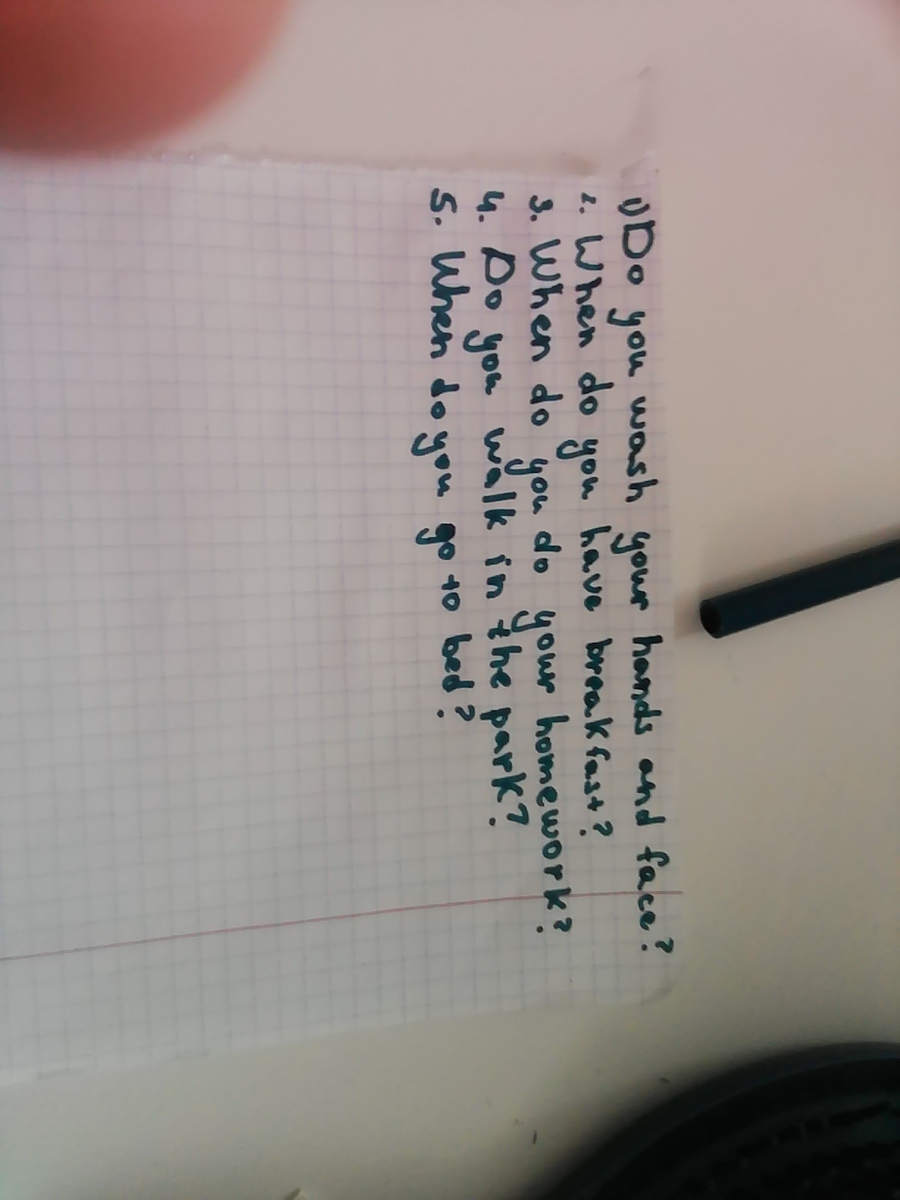 1) Do you wash your hands and face?
2. When do you have breakfast?
3. When do you do your homework?
4. Do you walk in the park?
5. When do you go to bed?